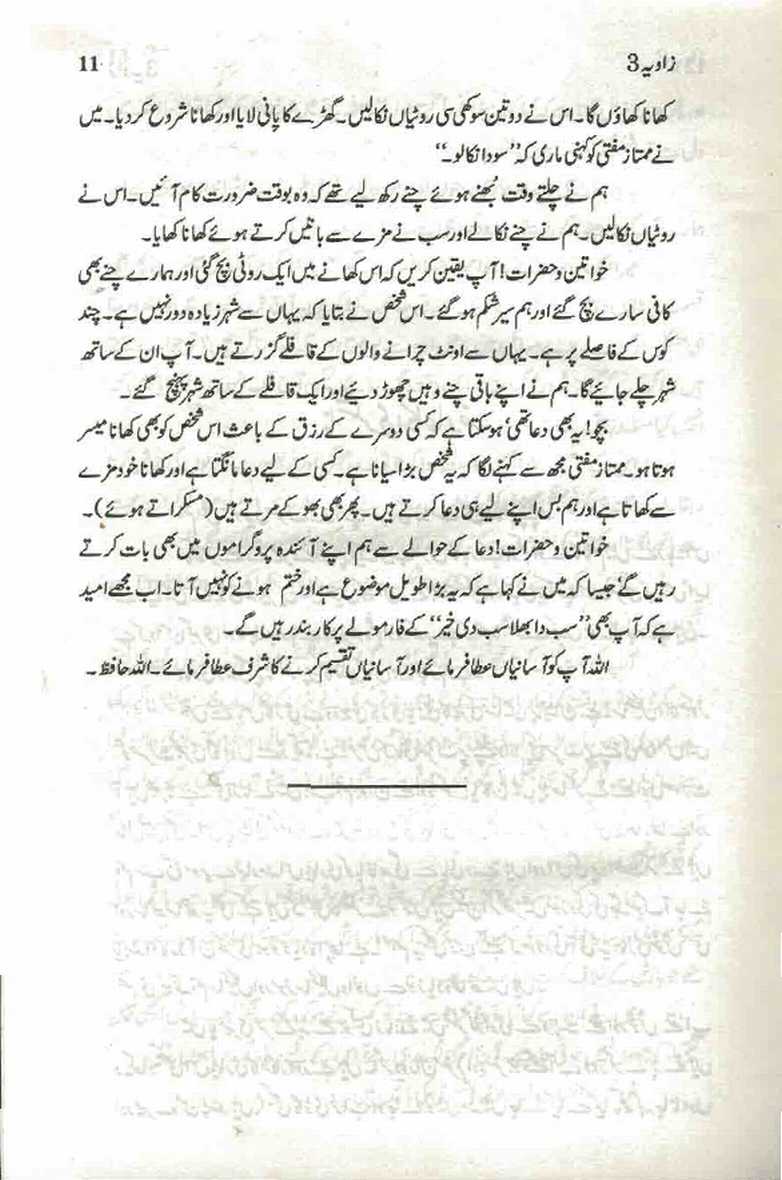 زاویہ 3
11
کھانا کھاؤں گا۔ اس نے دو تین سوکھی سی روٹیاں نکالیں۔ گھڑے کا پانی لایا اور کھانا شروع کر دیا۔ میں
نے ممتاز مفتی کو کہنی ماری کہ ”سودا نکالو۔“
ہم نے چلتے وقت بُھنے ہوئے چنے رکھ لیے تھے کہ وہ بوقت ضرورت کام آئیں۔ اس نے
روٹیاں نکالیں۔ ہم نے چنے نکالے اور سب نے مزے سے باتیں کرتے ہوئے کھانا کھایا۔
خواتین و حضرات! آپ یقین کریں کہ اس کھانے میں ایک روٹی بچ گئی اور ہمارے چنے بھی
کافی سارے بچ گئے اور ہم سیر شکم ہو گئے۔ اس شخص نے بتایا کہ یہاں سے شہر زیادہ دور نہیں ہے۔ چند
کوس کے فاصلے پر ہے۔ یہاں سے اونٹ چرانے والوں کے قافلے گزرتے ہیں۔ آپ ان کے ساتھ
شہر چلے جائیے گا۔ ہم نے اپنے باقی چنے وہیں چھوڑ دیئے اور ایک قافلے کے ساتھ شہر پہنچ گئے۔
بچو! یہ بھی دعا تھی‘ ہو سکتا ہے کہ کسی دوسرے کے رزق کے باعث اس شخص کو بھی کھانا میسر
ہوتا ہو۔ ممتاز مفتی مجھ سے کہنے لگا کہ یہ شخص بڑا سیانا ہے۔ کسی کے لیے دعا مانگتا ہے اور کھانا خود مزے
سے کھاتا ہے اور ہم بس اپنے لیے ہی دعا کرتے ہیں۔ پھر بھی بھوکے مرتے ہیں (مسکراتے ہوئے)۔
خواتین و حضرات! دعا کے حوالے سے ہم اپنے آئندہ پروگراموں میں بھی بات کرتے
رہیں گے‘ جیسا کہ میں نے کہا ہے کہ یہ بڑا طویل موضوع ہے اور ختم ہونے کو نہیں آتا۔ اب مجھے امید
ہے کہ آپ بھی ”سب دا بھلا سب دی خیر“ کے فارمولے پر کار بند رہیں گے۔
اللہ آپ کو آسانیاں عطا فرمائے اور آسانیاں تقسیم کرنے کا شرف عطا فرمائے۔ اللہ حافظ۔